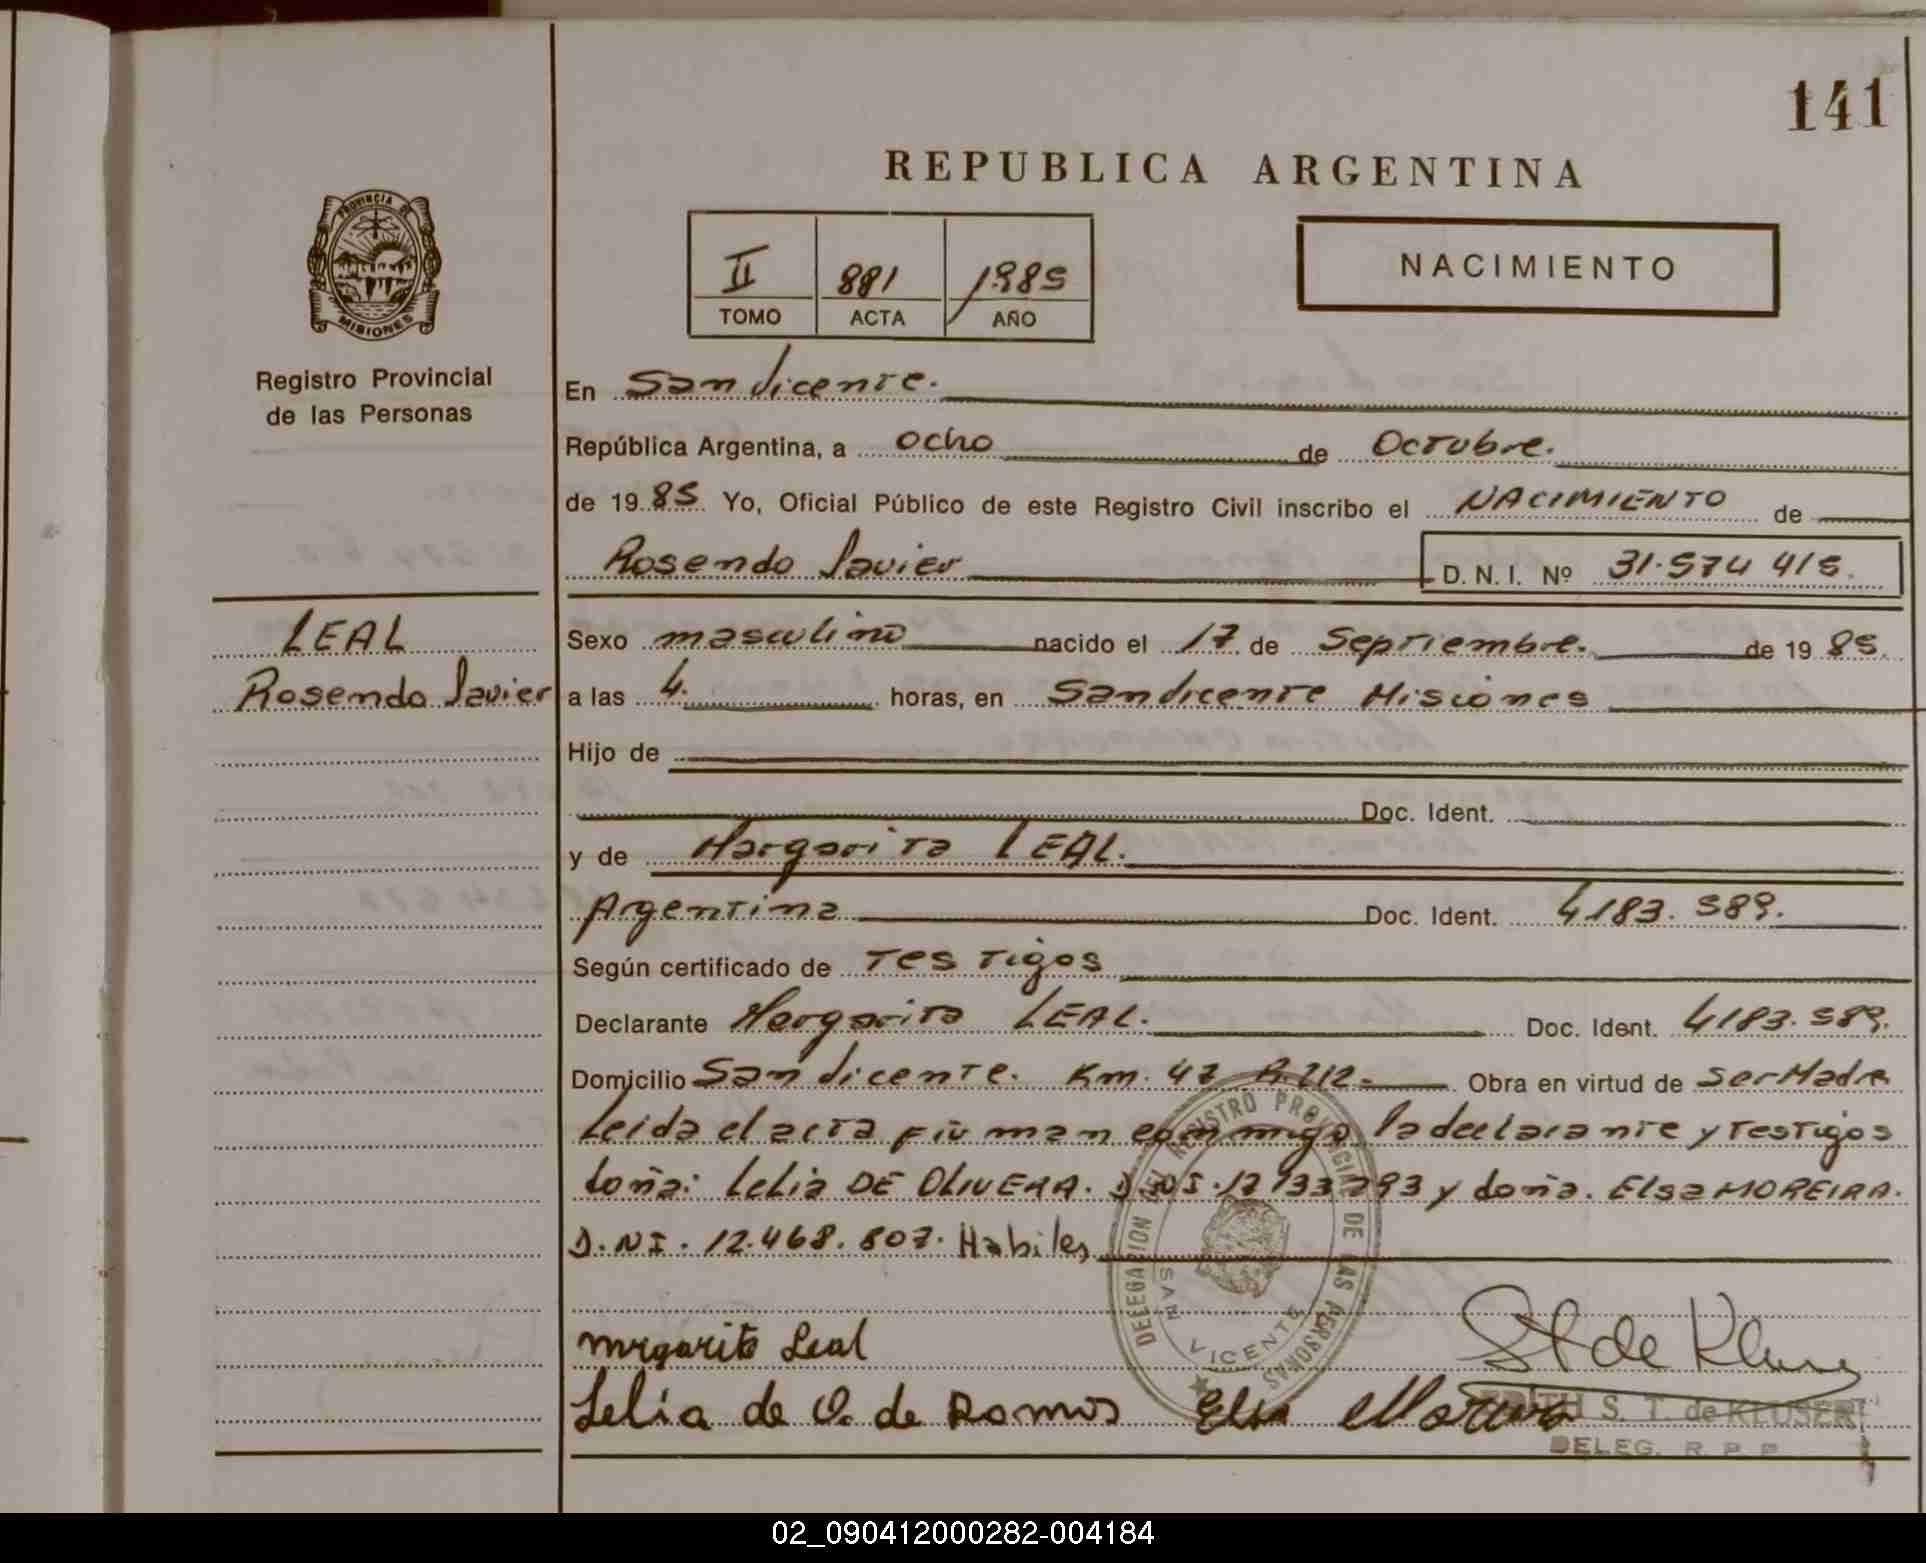 141
REPUBLICA ARGENTINA
PROVINCIA DE
MISIONES
Registro Provincial
de las Personas
II 881 1985
TOMO ACTA AÑO
NACIMIENTO
En San Vicente.
República Argentina, a ocho de Octubre.
de 19 85 Yo, Oficial Público de este Registro Civil inscribo el NACIMIENTO de
Rosendo Javier D. N. I. Nº 31.574 415.
LEAL
Rosendo Javier
Sexo masculino nacido el 17 de Septiembre. de 19 85.
a las 4. horas, en San Vicente Misiones
Hijo de
Doc. Ident.
y de Margarita LEAL.
Argentina Doc. Ident. 4183.589.
Según certificado de Testigos
Declarante Margarita LEAL. Doc. Ident. 4183.589.
Domicilio San Vicente. Km. 47 R.212- Obra en virtud de Ser Madre
Leida el acta firman conmigo la declarante y testigos
doña: Lelia DE OLIVERA. D.N.I. y doña. Elsa MOREIRA.
D.N.I. 12.468.807. Habiles
DELEGACION DEL REGISTRO PROVINCIAL DE LAS PERSONAS
SAN VICENTE
Mrgarita Leal
Lelia de O. de Ramos Elsa
EDITH S. T. de KLUSER
DELEG. R. P. P.
02_090412000282-004184